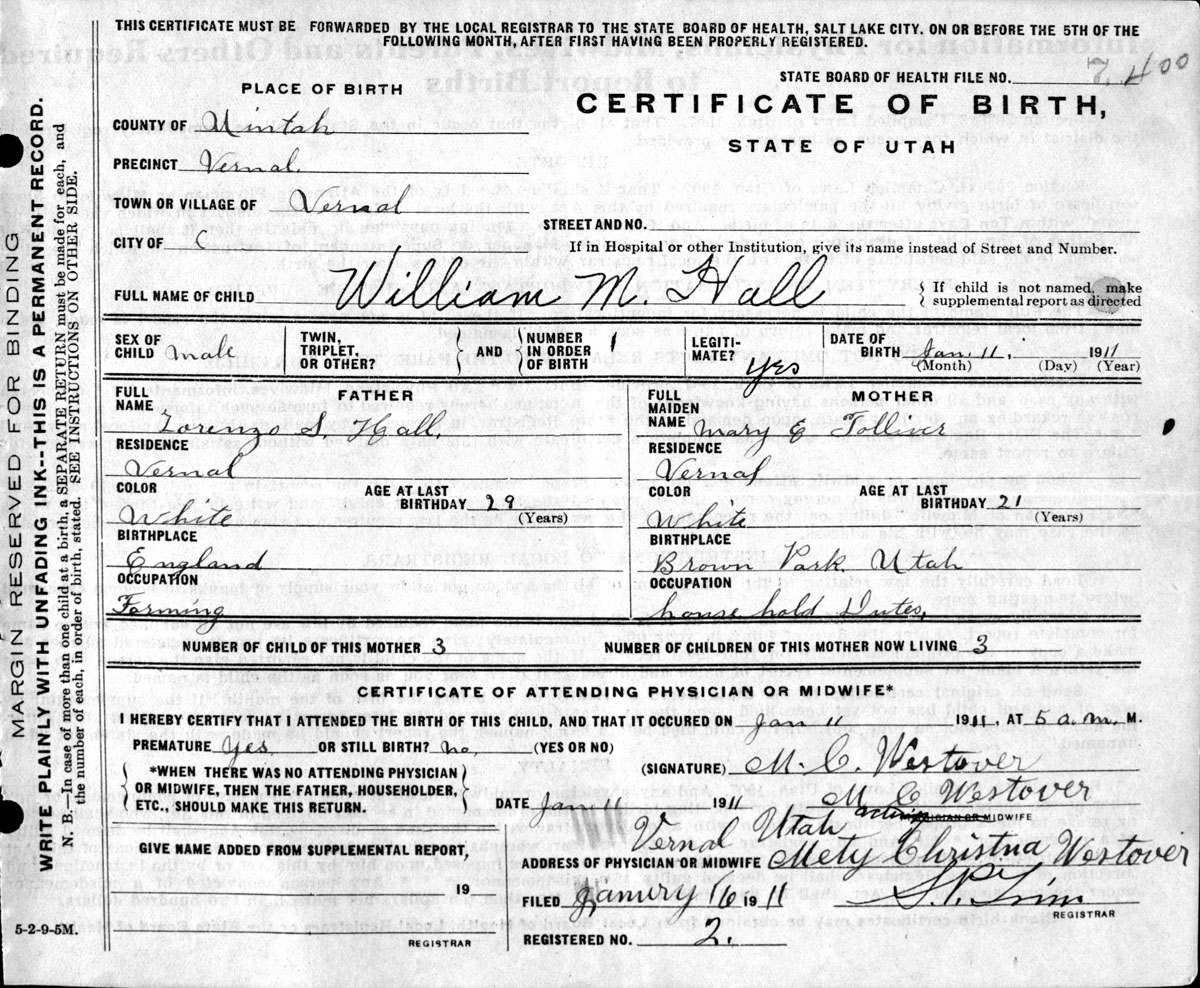 THIS CERTIFICATE MUST BE FORWARDED BY THE LOCAL REGISTRAR TO THE STATE BOARD OF HEALTH, SALT LAKE CITY. ON OR BEFORE THE 5TH OF THE
FOLLOWING MONTH, AFTER FIRST HAVING BEEN PROPERLY REGISTERED.
STATE BOARD OF HEALTH FILE NO. 7,400
PLACE OF BIRTH
CERTIFICATE OF BIRTH,
STATE OF UTAH
COUNTY OF Uintah
PRECINCT Vernal.
TOWN OR VILLAGE OF Vernal
STREET AND NO.
CITY OF C
If in Hospital or other Institution, give its name instead of Street and Number.
FULL NAME OF CHILD William M. Hall
If child is not named, make
supplemental report as directed
SEX OF CHILD male
TWIN, TRIPLET, OR OTHER?
AND
NUMBER IN ORDER OF BIRTH 1
LEGITIMATE? Yes
DATE OF BIRTH Jan. 11, 1911
(Month) (Day) (Year)
FATHER
FULL NAME Lorenzo S. Hall.
RESIDENCE
Vernal
COLOR
White
AGE AT LAST BIRTHDAY 29
(Years)
BIRTHPLACE
England
OCCUPATION
Farming
MOTHER
FULL MAIDEN NAME Mary E Tolliver
RESIDENCE
Vernal
COLOR
White
AGE AT LAST BIRTHDAY 21
(Years)
BIRTHPLACE
Brown Park. Utah
OCCUPATION
house hold Dutes,
NUMBER OF CHILD OF THIS MOTHER 3
NUMBER OF CHILDREN OF THIS MOTHER NOW LIVING 3
CERTIFICATE OF ATTENDING PHYSICIAN OR MIDWIFE*
I HEREBY CERTIFY THAT I ATTENDED THE BIRTH OF THIS CHILD, AND THAT IT OCCURED ON Jan 11 1911, AT 5 a.m. M.
PREMATURE Yes. OR STILL BIRTH? no. (YES OR NO)
*WHEN THERE WAS NO ATTENDING PHYSICIAN
OR MIDWIFE, THEN THE FATHER, HOUSEHOLDER,
ETC., SHOULD MAKE THIS RETURN.
(SIGNATURE) M. C. Westover
DATE Jan 11 1911 M C Westover
acting MIDWIFE
Vernal Utah
GIVE NAME ADDED FROM SUPPLEMENTAL REPORT,
ADDRESS OF PHYSICIAN OR MIDWIFE Mety Christna Westover
19
FILED Janury 16 1911
REGISTRAR
REGISTERED NO. 2.
5-2-9-5M.
REGISTRAR
MARGIN RESERVED FOR BINDING
WRITE PLAINLY WITH UNFADING INK--THIS IS A PERMANENT RECORD.
N. B.—In case of more than one child at a birth, a SEPARATE RETURN must be made for each, and
the number of each, in order of birth, stated. SEE INSTRUCTIONS ON OTHER SIDE.